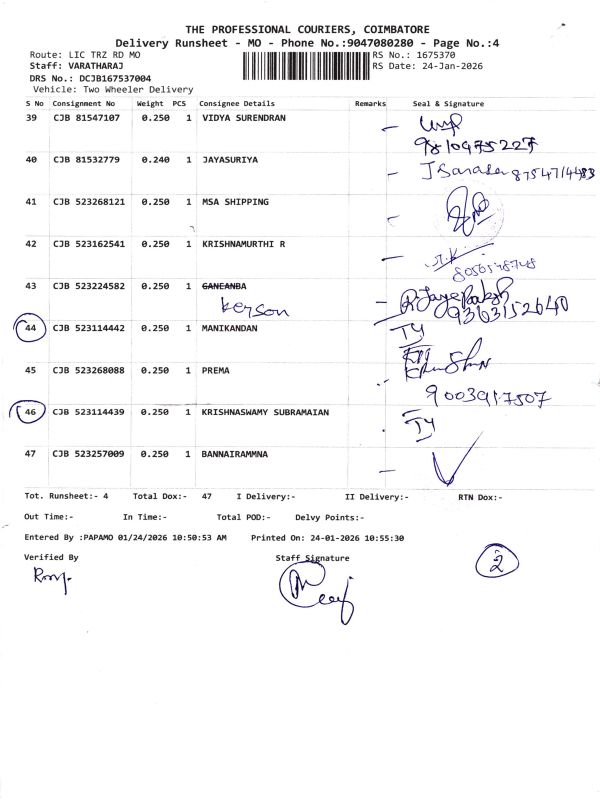 THE PROFESSIONAL COURIERS, COIMBATORE
Delivery Runsheet - MO - Phone No.:9047080280 - Page No.:4
Route: LIC TRZ RD MO RS No.: 1675370
Staff: VARATHARAJ RS Date: 24-Jan-2026
DRS No.: DCJB167537004
Vehicle: Two Wheeler Delivery
S No Consignment No Weight PCS Consignee Details Remarks Seal & Signature
39 CJB 81547107 0.250 1 VIDYA SURENDRAN
9810475227
40 CJB 81532779 0.240 1 JAYASURIYA
8754714483
41 CJB 523268121 0.250 1 MSA SHIPPING
42 CJB 523162541 0.250 1 KRISHNAMURTHI R
43 CJB 523224582 0.250 1 GANEANBA
kerson
9363152640
44 CJB 523114442 0.250 1 MANIKANDAN TY
45 CJB 523268088 0.250 1 PREMA
9003917507
46 CJB 523114439 0.250 1 KRISHNASWAMY SUBRAMAIAN TY
47 CJB 523257009 0.250 1 BANNAIRAMMNA
Tot. Runsheet:- 4 Total Dox:- 47 I Delivery:- II Delivery:- RTN Dox:-
Out Time:- In Time:- Total POD:- Delvy Points:-
Entered By :PAPAMO 01/24/2026 10:50:53 AM Printed On: 24-01-2026 10:55:30
Verified By Staff Signature
2